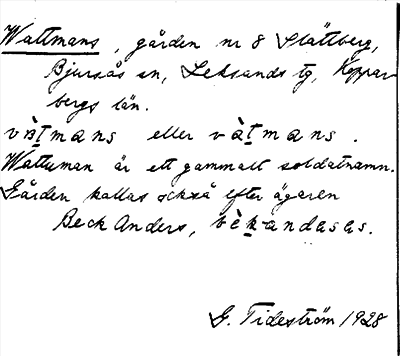 Wattmans, gården nr 8 Slättberg,
Bjursås sn, Leksands tg, Koppar-
bergs län.
vàtmans eller vàtmans.
Wattman är ett gammalt soldatnamn.
Gården kallas också efter ägaren
Beck Anders, bèkandasas.
G. Tideström 1928